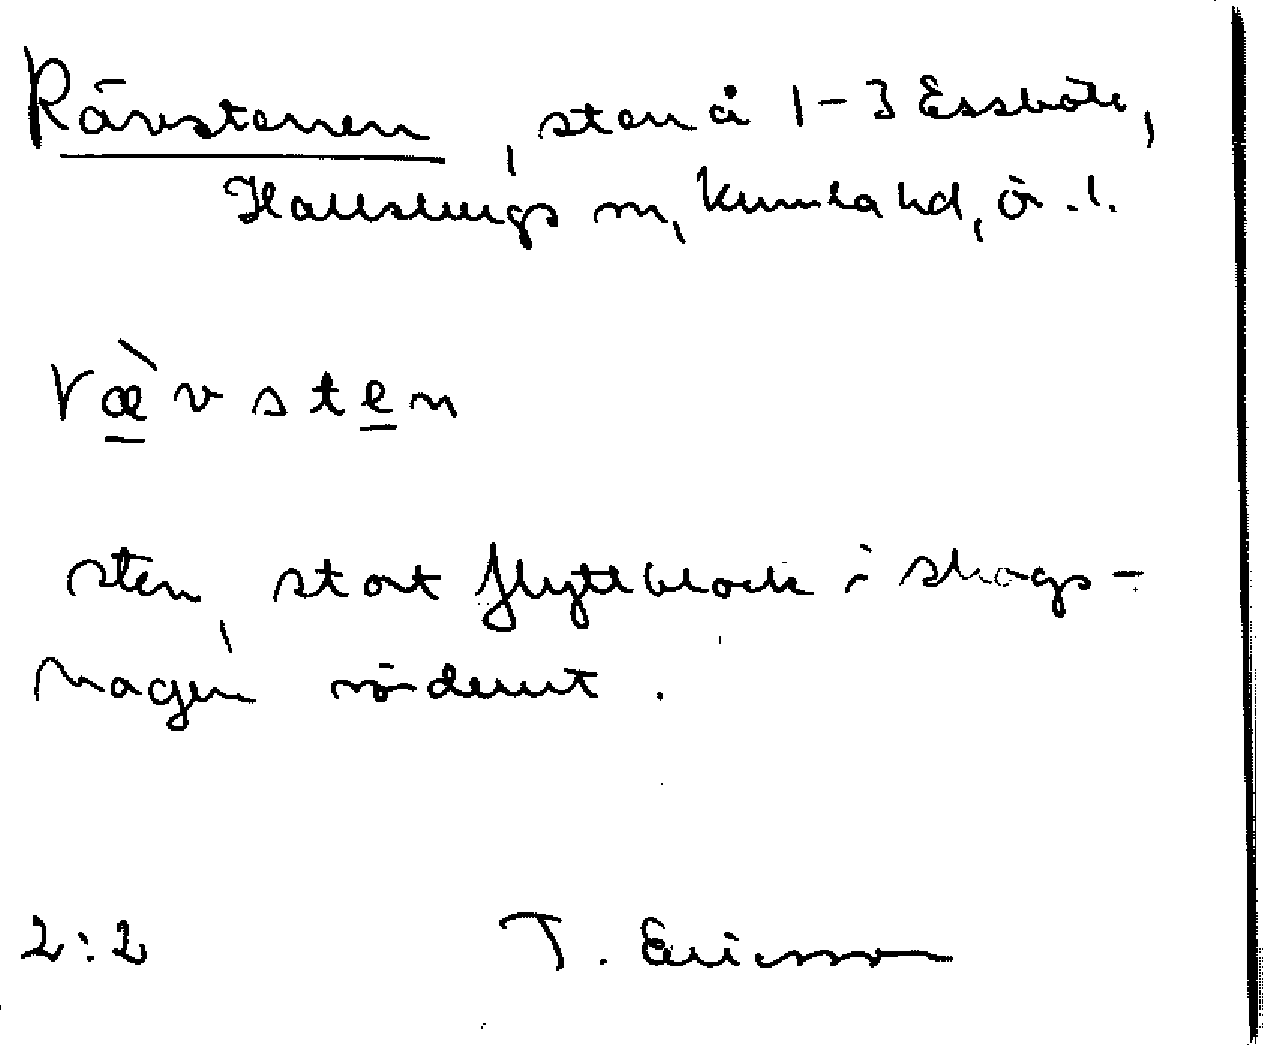 Rävstenen, sten å 1-3 Essboke,
Hallsbergs sn, Kumla hd, ör. l.
ræ̀vsten
sten, stort flyttblock i skogs-
hagen söderut.
2:2 T. Ericsson